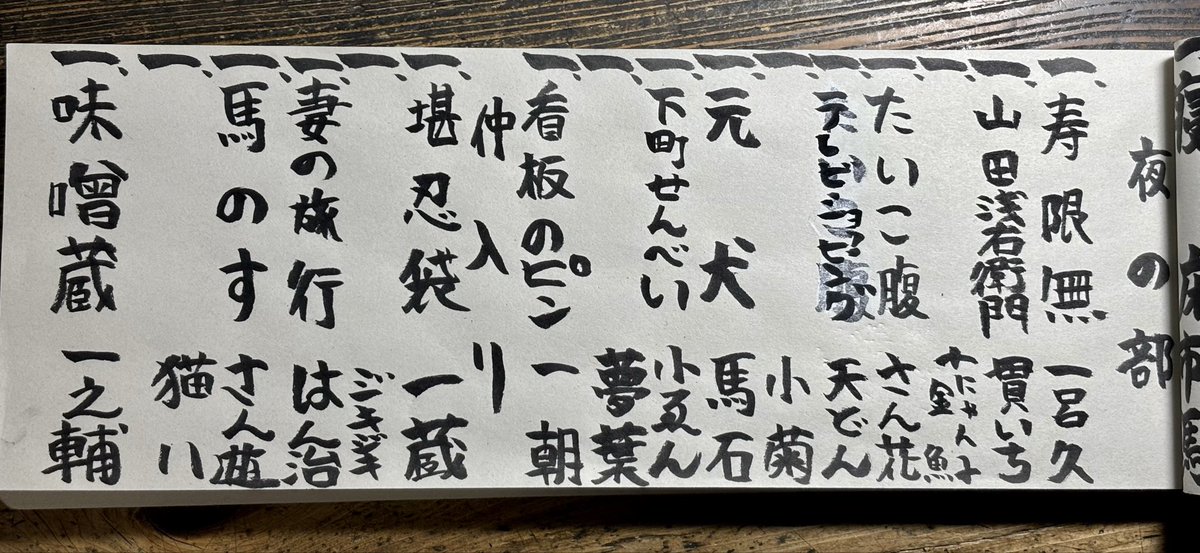 夜の部
一、寿限無 一呂久
一、山田浅右衛門 貫いち
一、にゃん子 金魚
一、たいこ腹 さん花
一、天どん
一、小菊
一、元犬 馬石
一、下町せんべい 小ゑん
一、夢葉
一、看板のピン 一朝
仲入り
一、堪忍袋 一蔵
一、ニキ
一、妻の旅行 はん治
一、馬のす さん遊
一、猫八
一、味噌蔵 一之輔